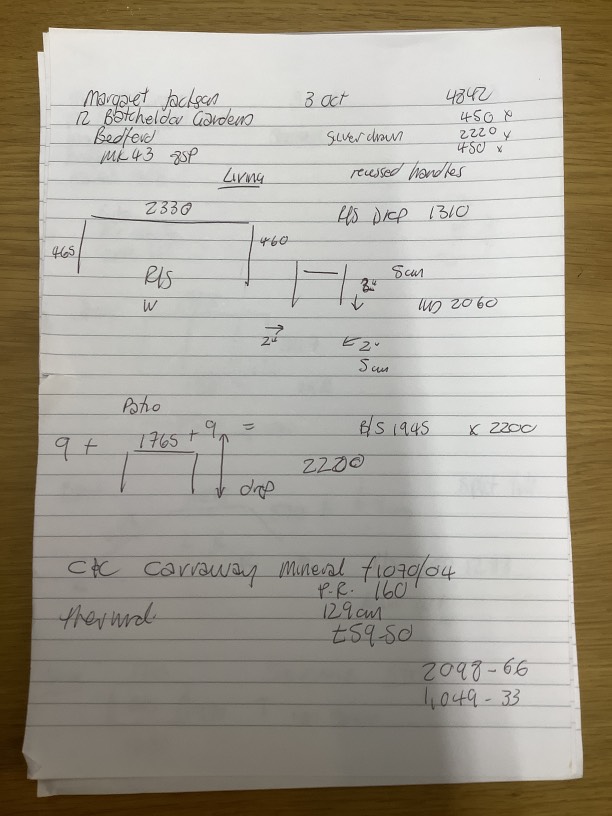 Margaret Jackson 3 Oct 4342
12 Batcheldor Gardens 450 x
Bedford Silverdawn 2220 x
MK43 450 x
Living recessed handles
2330 R/S Drop 1310
465 460
R/S 3" 5cm
W IW) 2060
2" 2"
5cm
Patio
9 + 1765 + 9 = R/S 1945 x 2200
2200
drop
C&C Carraway Mineral f1070/04
P.R. 160
thermal 129cm
£59-50
2098-66
1,049-33